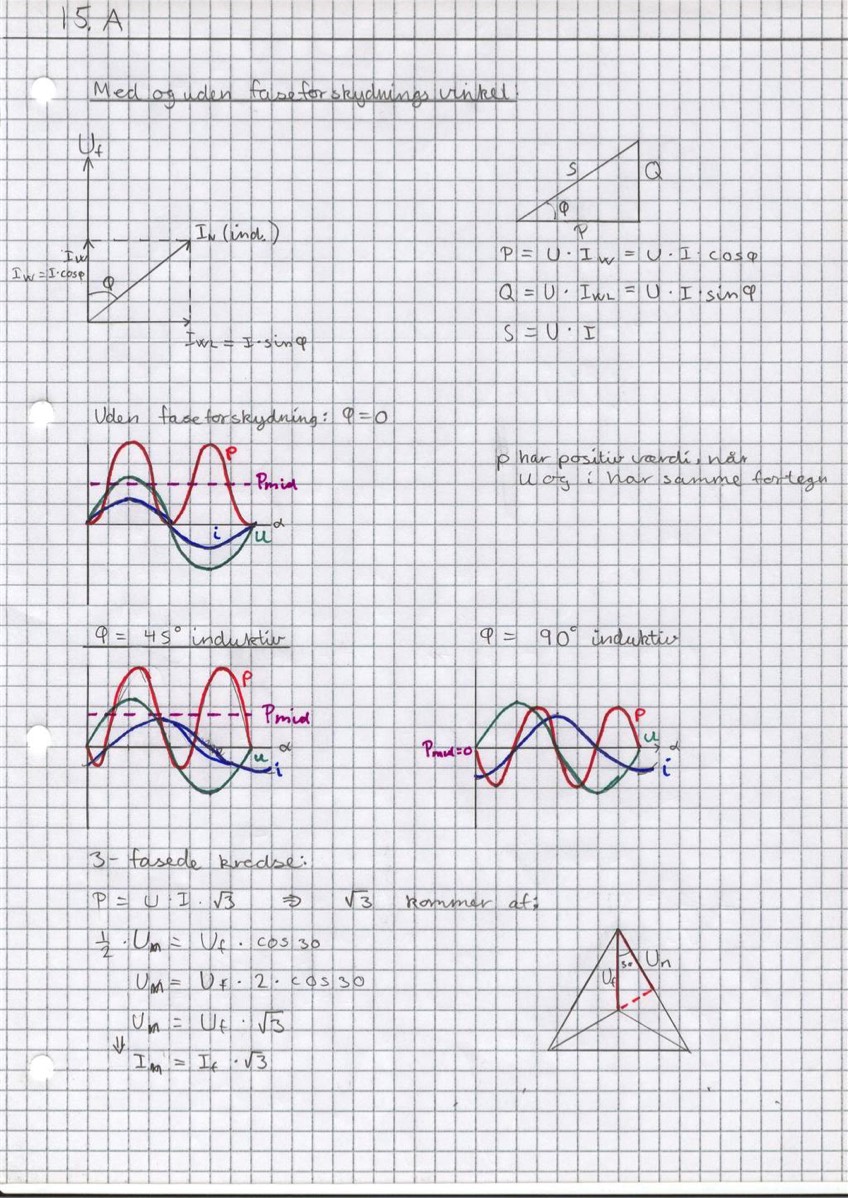 15. A
Med og uden faseforskydningsvinkel:
U_f
I_N (ind.)
I_W
I_W = I·cosφ
φ
I_WL = I·sinφ
S
Q
φ
P
P = U · I_W = U · I · cosφ
Q = U · I_WL = U · I · sinφ
S = U · I
Uden faseforskydning: φ=0
P
Pmid
α
i
u
p har positiv værdi, når
u og i har samme fortegn
φ = 45° induktiv
P
Pmid
α
u
i
φ = 90° induktiv
P
u
α
Pmid=0
i
3-fasede kredse:
P = U · I · √3 ⇒ √3 kommer af:
½ · U_n = U_f · cos 30
U_n = U_f · 2 · cos 30
U_n = U_f · √3
⇓
I_n = I_f · √3
30
U_f
U_n